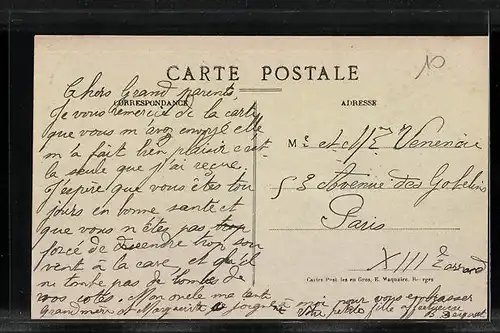 CARTE POSTALE
CORRESPONDANCE
ADRESSE
Chers Grand parents,
Je vous remercie de la carte
que vous m'avez envoyé elle
m'a fait bien plaisir c'est
la seule que j'ai reçue
J'espère que vous êtes tou
jours en bonne santé et
que vous n'êtes pas trop
forcé de descendre trop sou
vent à la cave, et qu'il
ne tombe pas de bombes de
vos côtés. Mon oncle ma tante
Grand'mère et Marguerite se joignent à moi pour vous embrasser
Votre petite fille affectueuse
Mr et Mme
53 Avenue des Gobelins
Paris
XIII e
Cartes Postales en Gros, E. Maquaire, Bourges